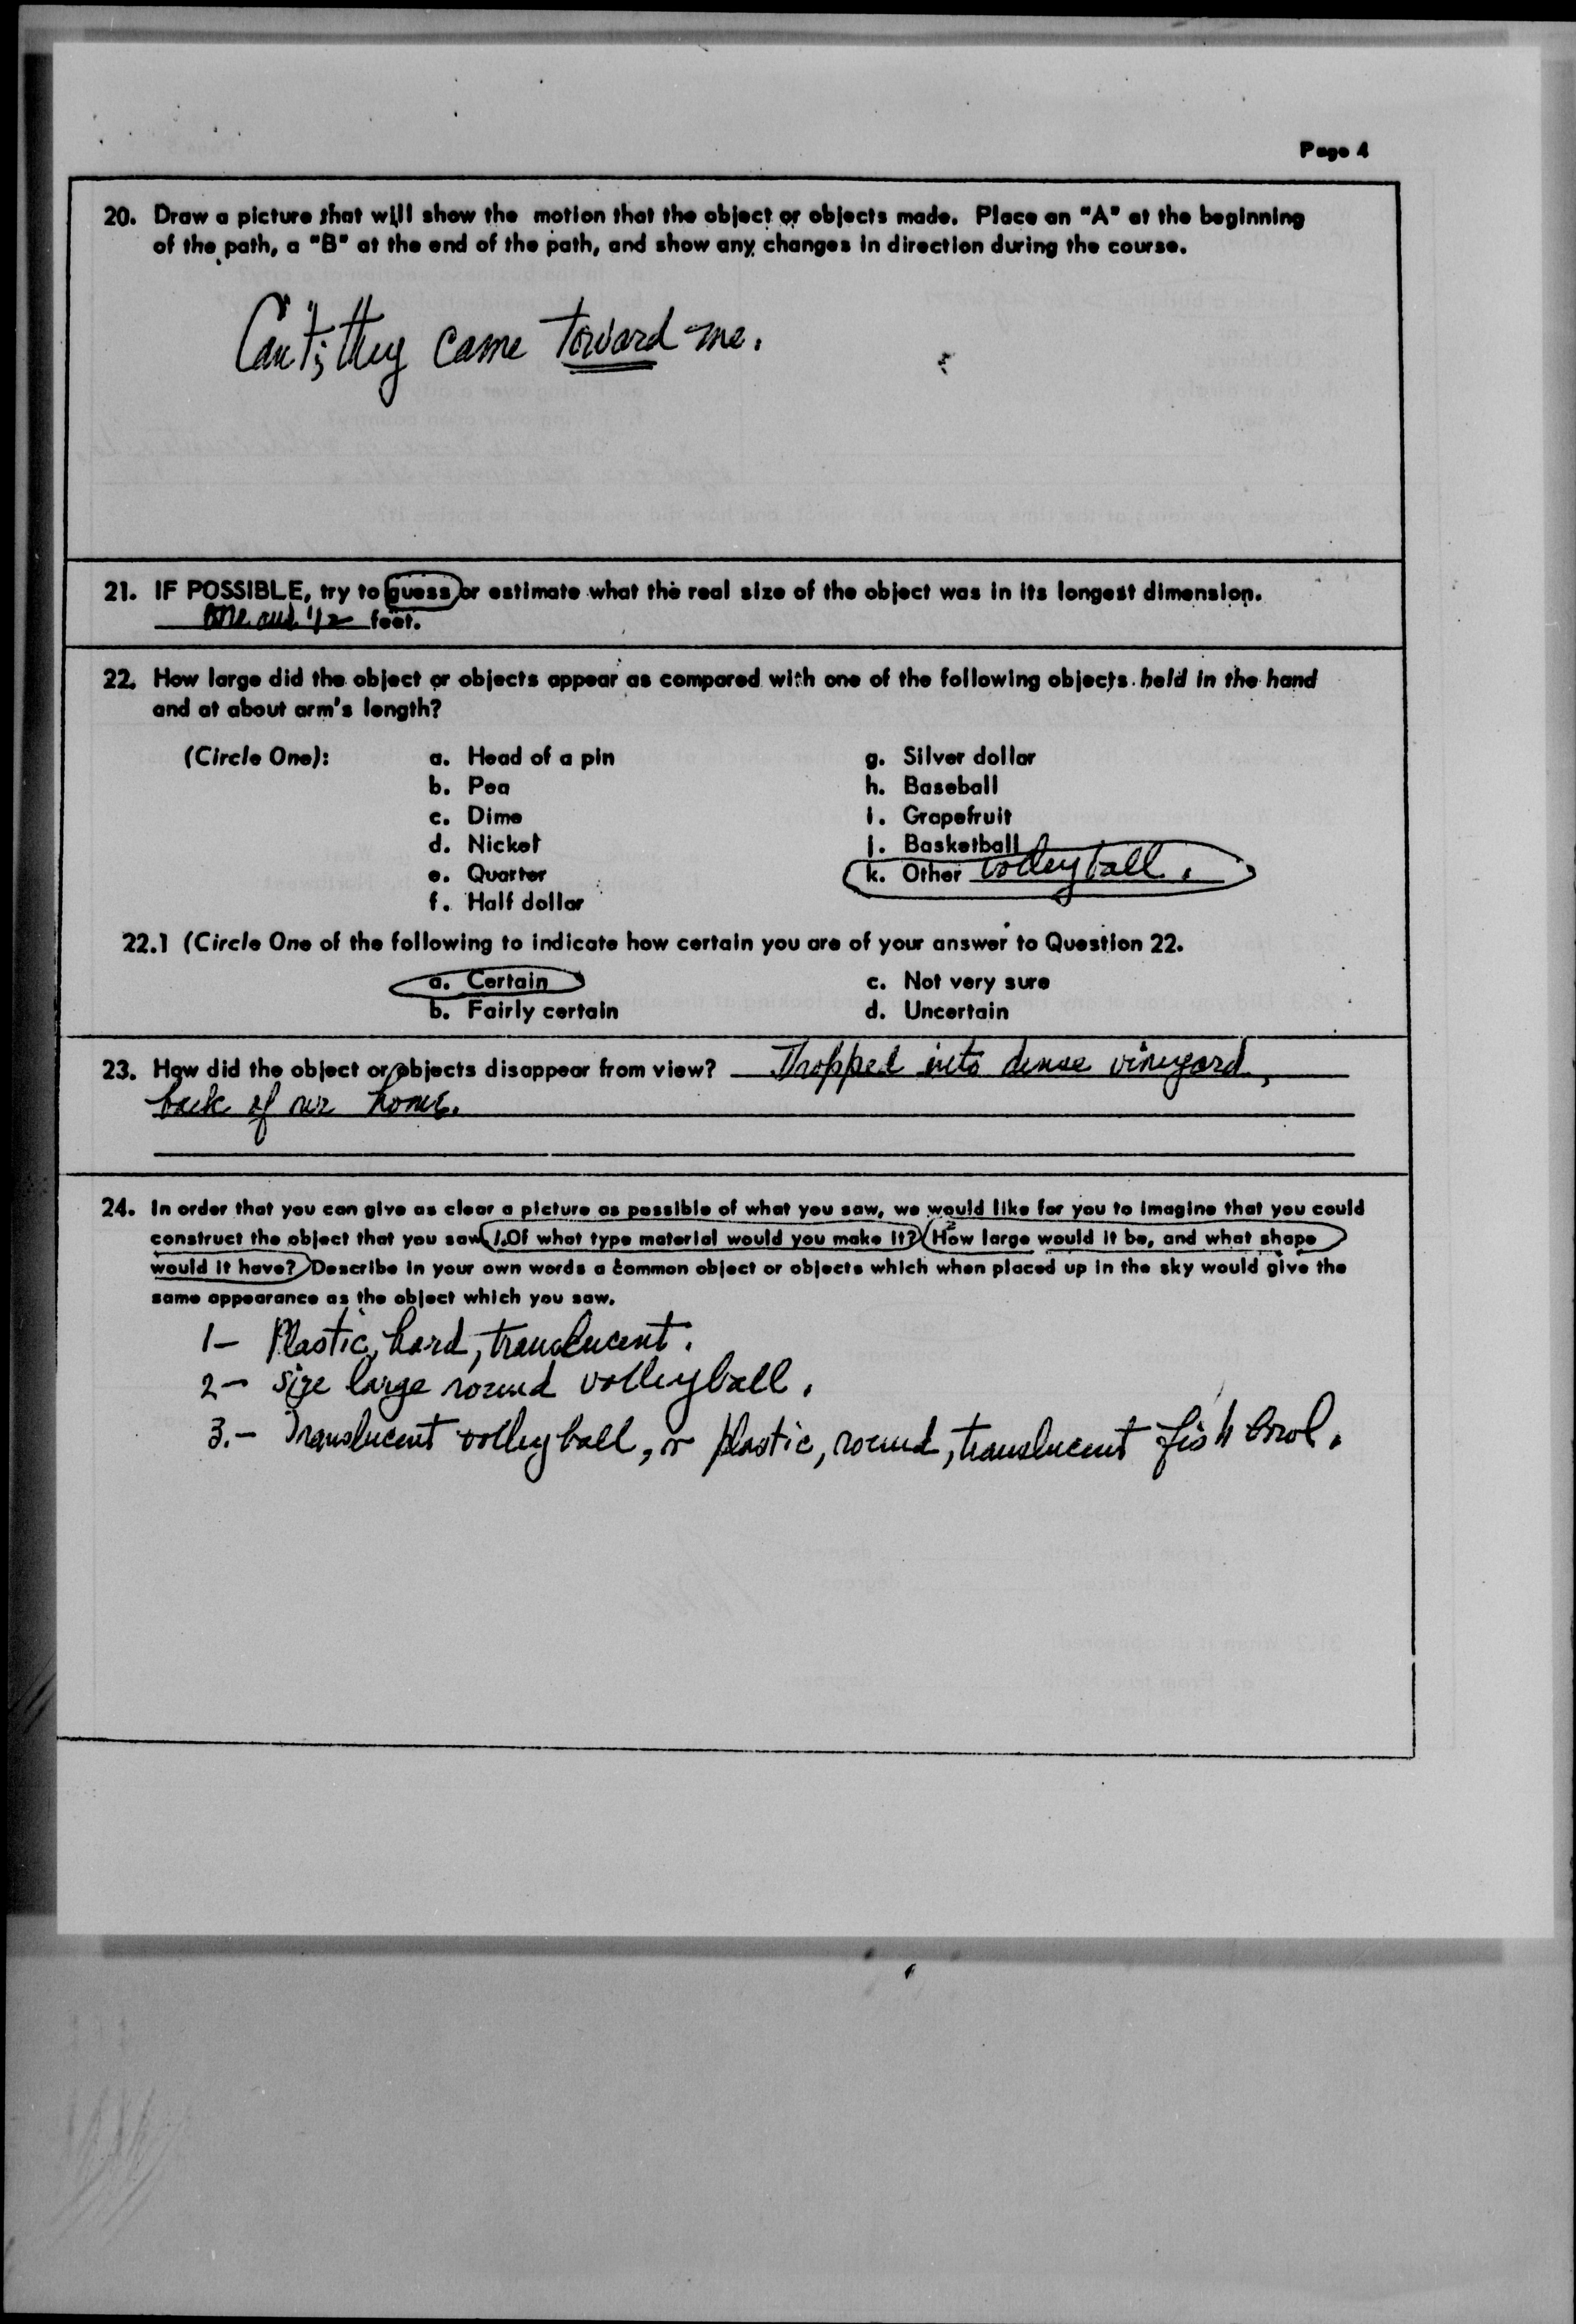 Page 4
20. Draw a picture that will show the motion that the object or objects made. Place an "A" at the beginning
of the path, a "B" at the end of the path, and show any changes in direction during the course.
Can't; they came toward me.
21. IF POSSIBLE, try to guess or estimate what the real size of the object was in its longest dimension.
One and 1/2 feet.
22. How large did the object or objects appear as compared with one of the following objects held in the hand
and at about arm's length?
(Circle One): a. Head of a pin g. Silver dollar
b. Pea h. Baseball
c. Dime i. Grapefruit
d. Nickel j. Basketball
e. Quarter k. Other volleyball.
f. Half dollar
22.1 (Circle One of the following to indicate how certain you are of your answer to Question 22.
a. Certain c. Not very sure
b. Fairly certain d. Uncertain
23. How did the object or objects disappear from view? Dropped into dense vineyard,
back of our home.
24. In order that you can give as clear a picture as possible of what you saw, we would like for you to imagine that you could
construct the object that you saw. 1. Of what type material would you make it? 2 How large would it be, and what shape
would it have? Describe in your own words a common object or objects which when placed up in the sky would give the
same appearance as the object which you saw.
1- Plastic, hard, translucent.
2- size large round volleyball.
3.- Translucent volleyball, or plastic, round, translucent fish bowl.